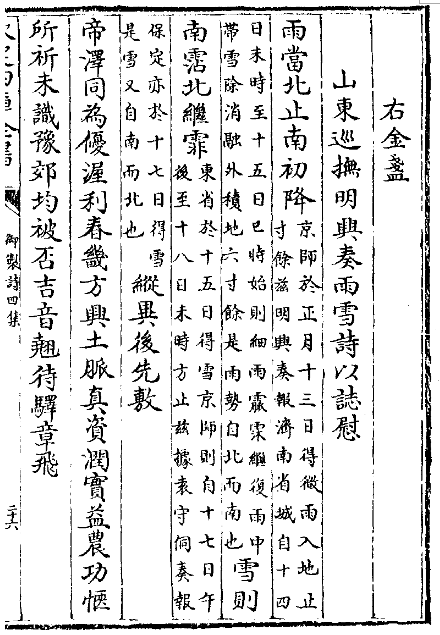 右金盞
山東巡撫明興奏雨雪詩以誌慰
雨當北止南初降
京師於正月十三日得微雨入地止
寸餘茲明興奏報濟南省城自十四
日未時至十五日巳時始則細雨霡霂繼復雨中
帶雪除消融外積地六寸餘是雨勢自北而南也
雪則
南霑北繼霏
東省於十五日得雪京師則自十七日午
後至十八日未時方止茲據袁守侗奏報
保定亦於十七日得雪
是雪又自南而北也
縱異後先敷
帝澤同為優渥利春畿方興土脈真資潤實益農功愜
所祈未識豫郊均被否吉音翹待驛章飛
御製詩四集